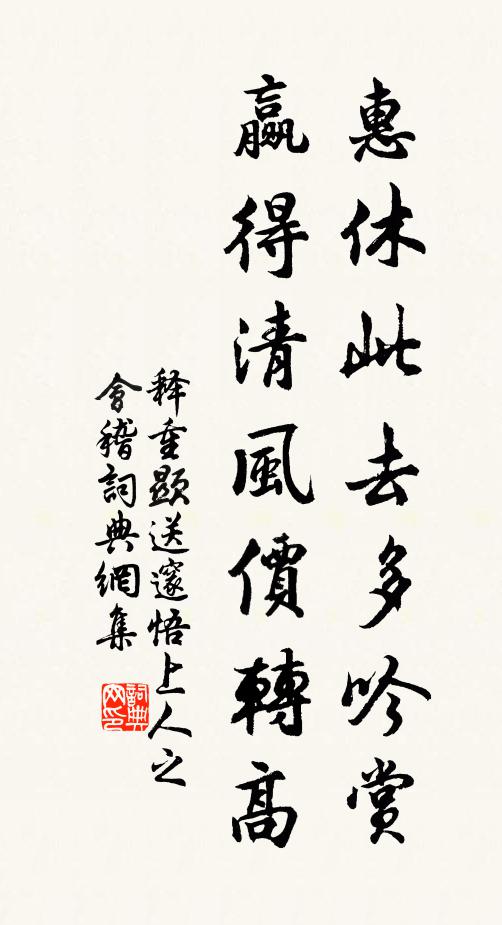 惠休此去多吟赏
贏得清風價轉高
释重顯送邃悟上人之
會稽詞典網集
詞典网印